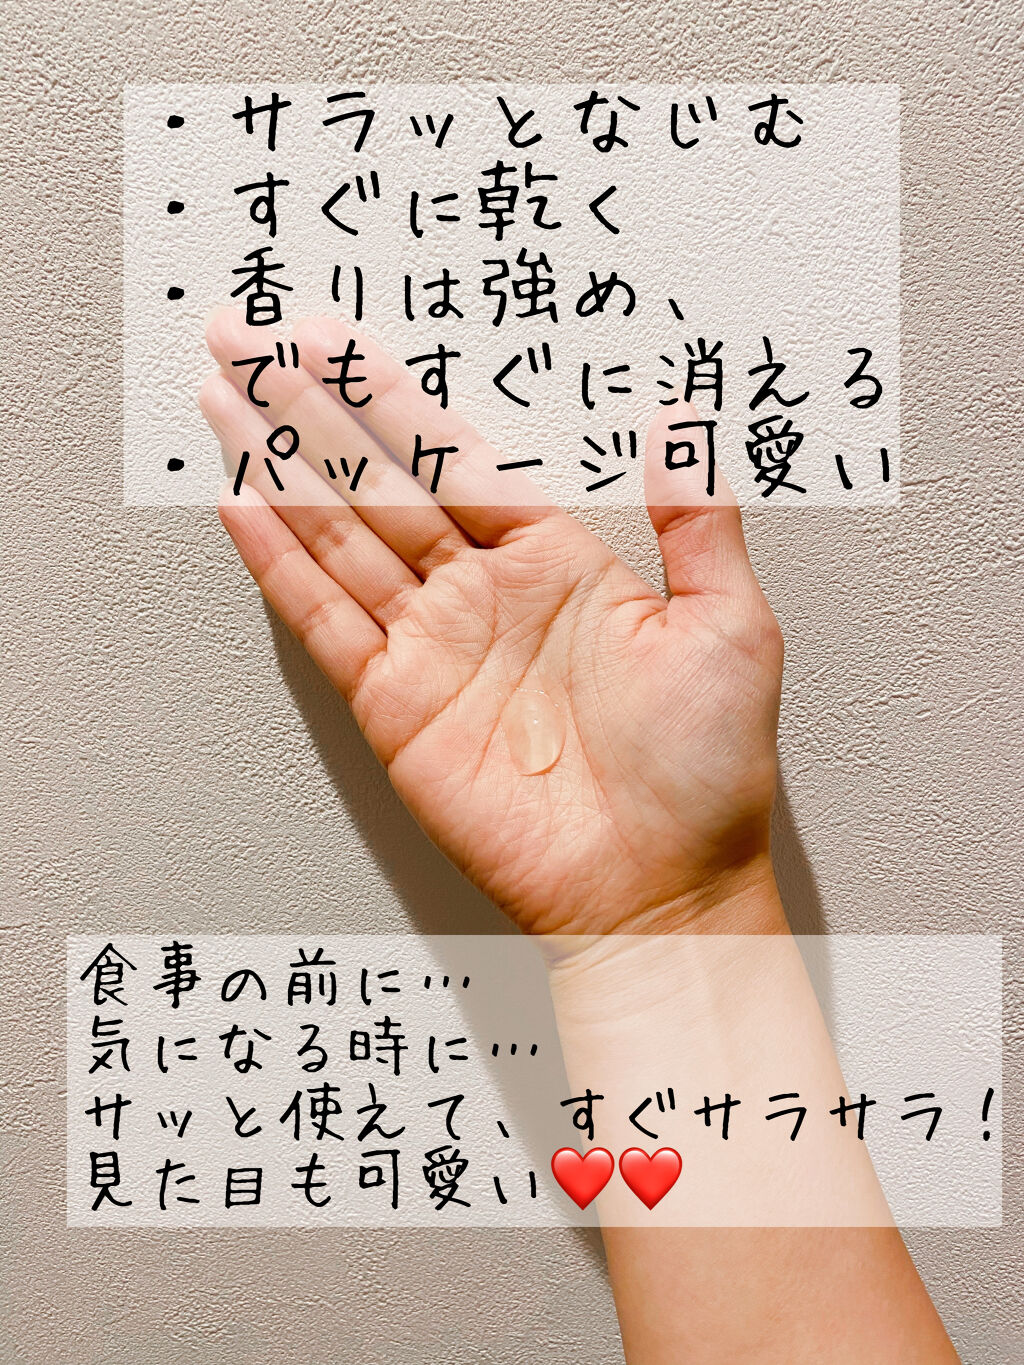 ・サラッとなじむ
・すぐに乾く
・香りは強め、
でもすぐに消える
・パッケージ可愛い
食事の前に…
気になる時に…
サッと使えて、すぐサラサラ！
見た目も可愛い❤️❤️